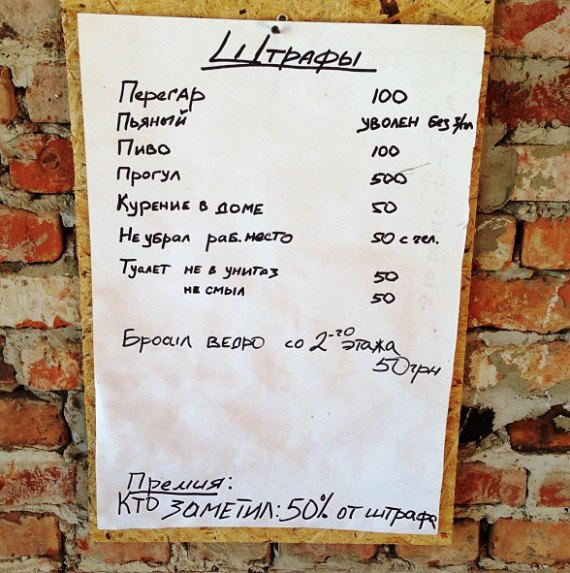 Штрафы
Перегар 100
Пьяный уволен без з/пл
Пиво 100
Прогул 500
Курение в доме 50
Не убрал раб. место 50 с чел.
Туалет не в унитаз 50
не смыл 50
Бросил ведро со 2-го этажа
50 грн
Премия:
Кто заметил: 50% от штрафа